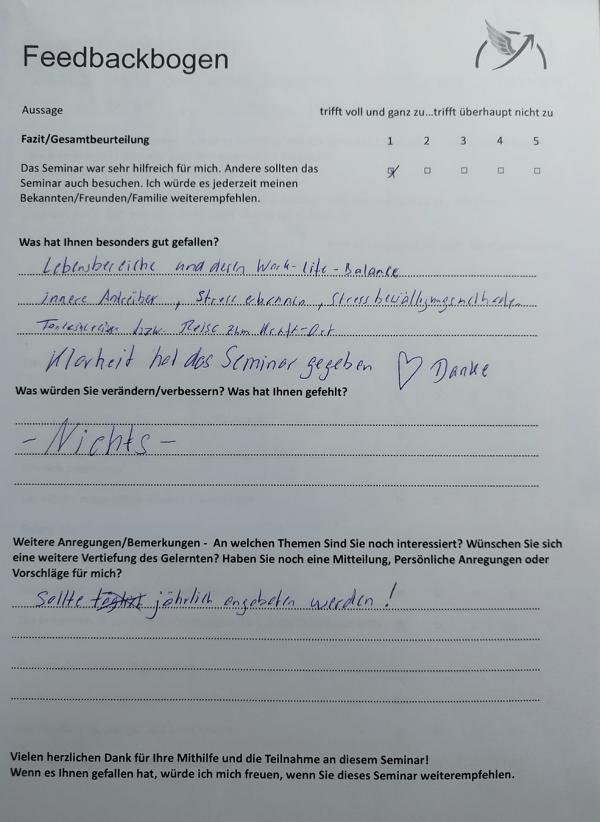 Feedbackbogen
Aussage trifft voll und ganz zu...trifft überhaupt nicht zu
Fazit/Gesamtbeurteilung 1 2 3 4 5
Das Seminar war sehr hilfreich für mich. Andere sollten das
Seminar auch besuchen. Ich würde es jederzeit meinen
Bekannten/Freunden/Familie weiterempfehlen.
Was hat Ihnen besonders gut gefallen?
Lebensbereiche und deren Work-life-Balance
innere Antreiber, Stress erkennen, Stressbewältigungsmethoden
bzw. Reise zum Kraft-Ort
Klarheit hat das Seminar gegeben ♡ Danke
Was würden Sie verändern/verbessern? Was hat Ihnen gefehlt?
- Nichts -
Weitere Anregungen/Bemerkungen - An welchen Themen Sind Sie noch interessiert? Wünschen Sie sich
eine weitere Vertiefung des Gelernten? Haben Sie noch eine Mitteilung, Persönliche Anregungen oder
Vorschläge für mich?
Sollte jährlich angeboten werden!
Vielen herzlichen Dank für Ihre Mithilfe und die Teilnahme an diesem Seminar!
Wenn es Ihnen gefallen hat, würde ich mich freuen, wenn Sie dieses Seminar weiterempfehlen.